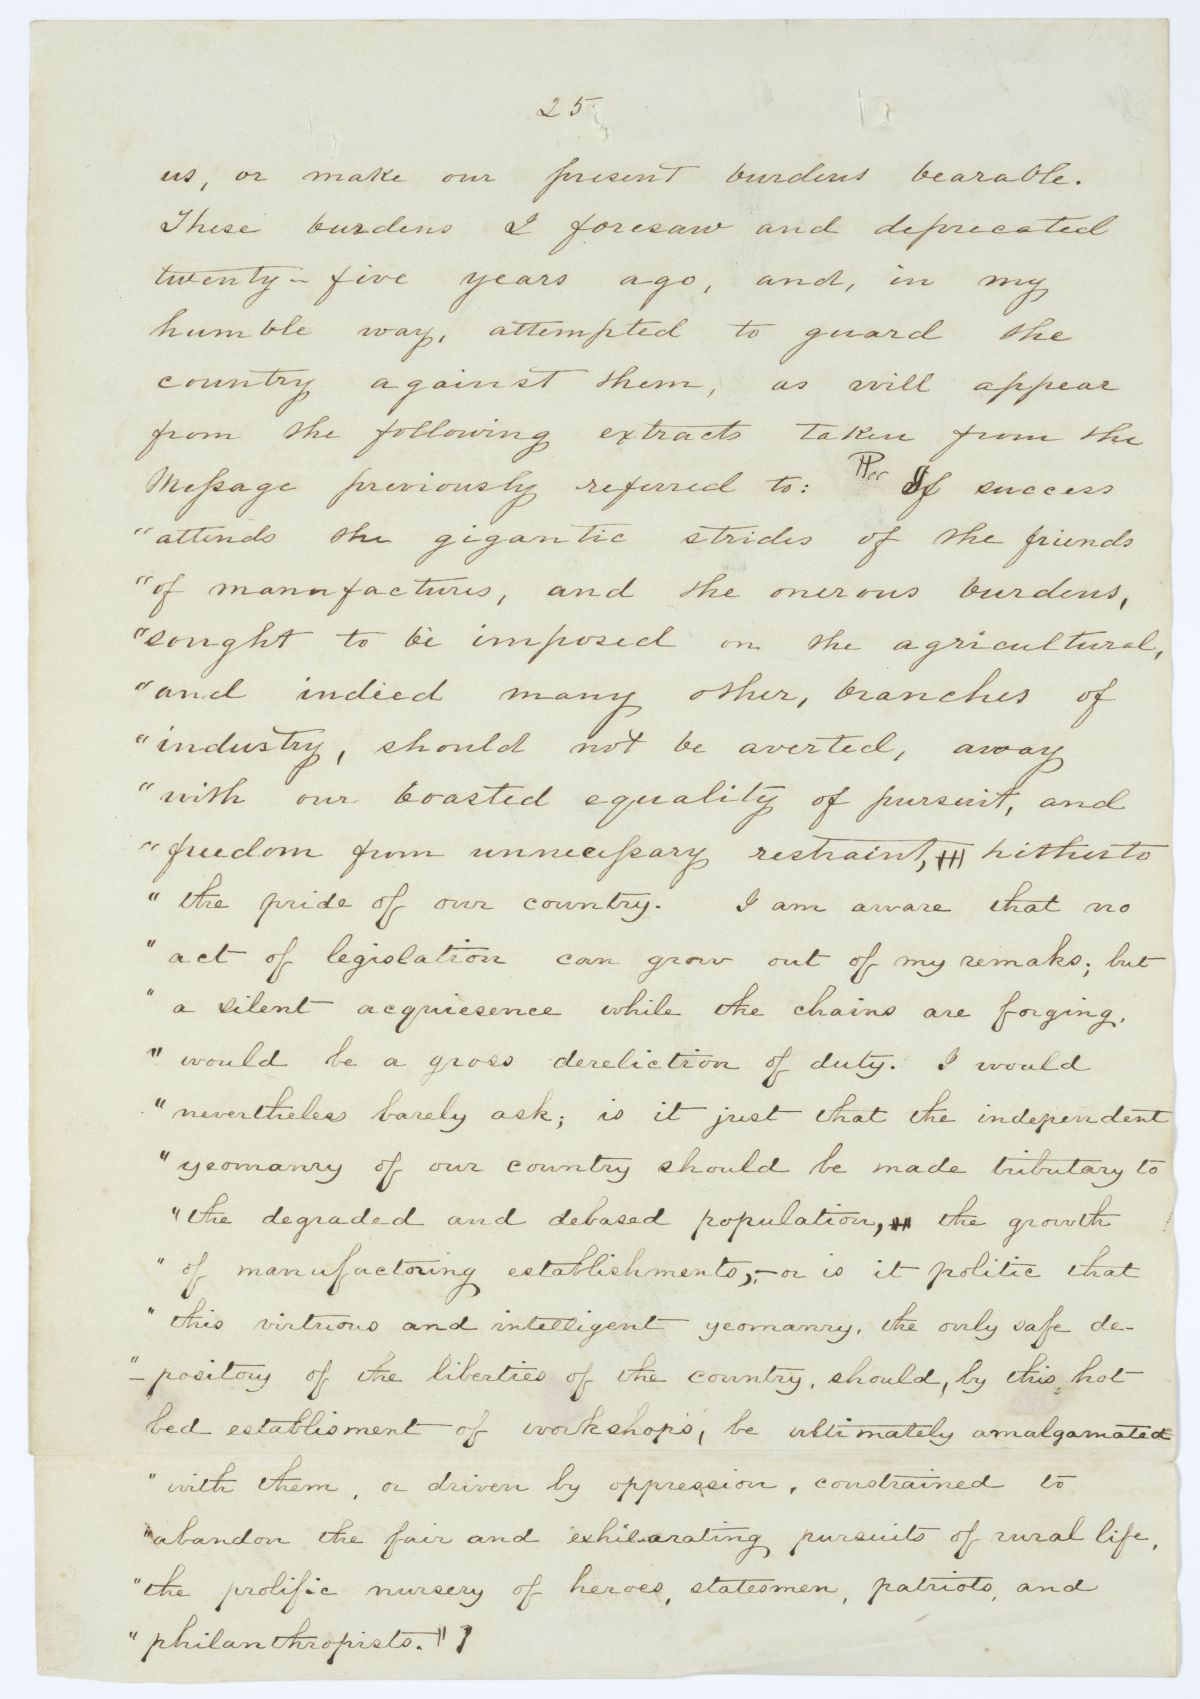 25
us, or make our present burdens bearable.
These burdens I foresaw and deprecated
twenty-five years ago, and, in my
humble way, attempted to guard the
country against them, as will appear
from the following extracts taken from the
Message previously referred to: If success
"attends the gigantic strides of the friends
"of manufactures, and the onerous burdens,
"sought to be imposed on the agricultural,
"and indeed many other, branches of
"industry, should not be averted, away
"with our boasted equality of pursuit, and
"freedom from unnecessary restraint, hitherto
"the pride of our country. I am aware that no
"act of legislation can grow out of my remaks; but
"a silent acquiesence while the chains are forging,
"would be a gross dereliction of duty. I would
"nevertheless barely ask; is it just that the independent
"yeomanry of our country should be made tributary to
"the degraded and debased population, the growth
"of manufactoring establishments,- or is it politic that
"this virtuous and intelligent yeomanry, the only safe de-
"-pository of the liberties of the country, should, by this hot
bed establisment of workshops, be ultimately amalgamated
"with them, or driven by oppression, constrained to
"abandon the fair and exhilarating pursuits of rural life,
"the prolific nursery of heroes, statesmen, patriots, and
"philanthropists."